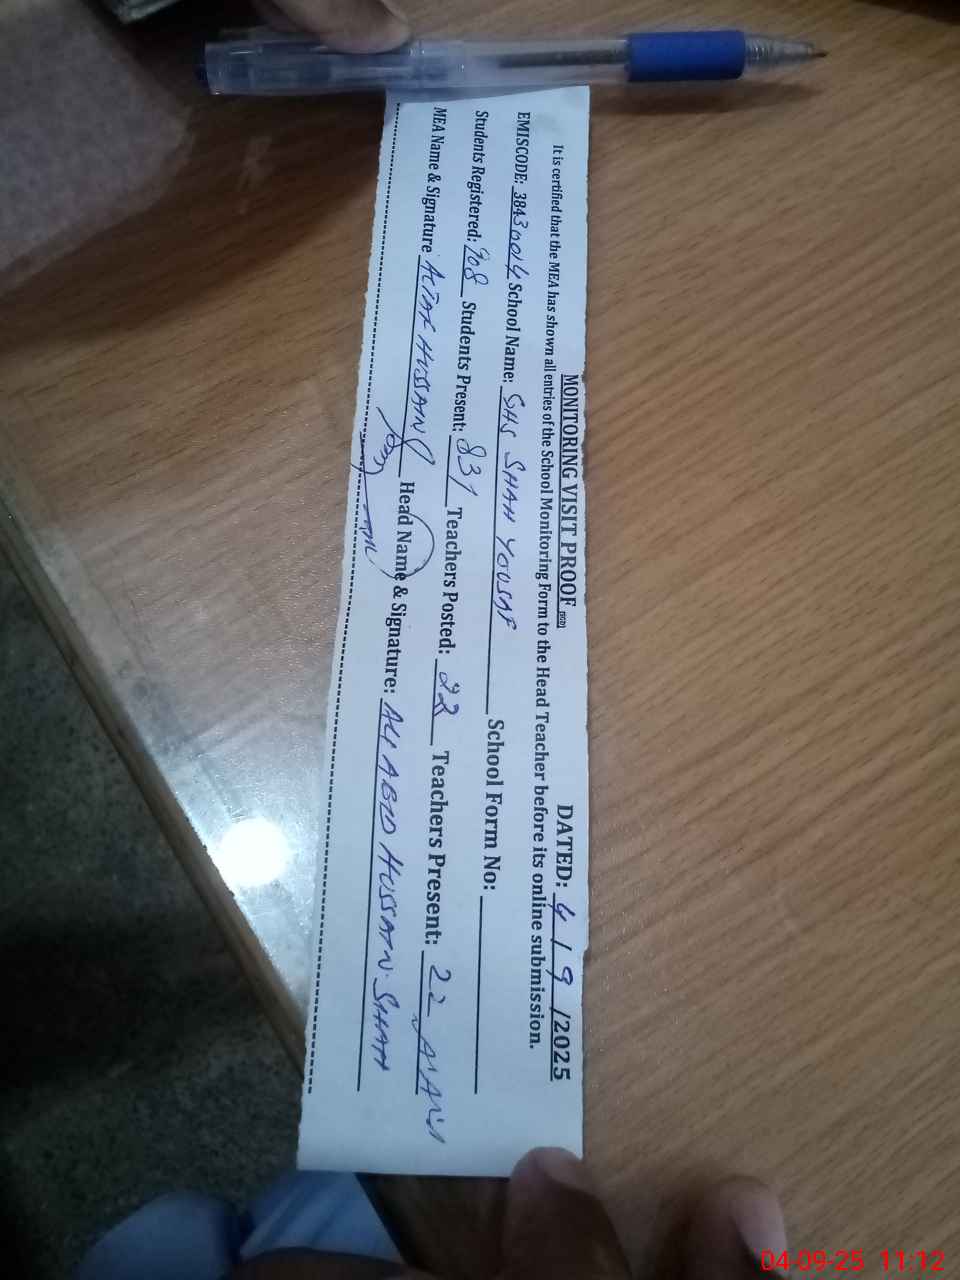 MONITORING VISIT PROOF (SGD) DATED: 4 / 9 /2025
It is certified that the MEA has shown all entries of the School Monitoring Form to the Head Teacher before its online submission.
EMISCODE: 38430014 School Name: GHS SHAH YOUSAF School Form No:
Students Registered: 908 Students Present: 831 Teachers Posted: 22 Teachers Present: 22
MEA Name & Signature ALTAF HUSSAIN Head Name & Signature: ALI ABID HUSSAIN SHAH
04-09-25 11:12